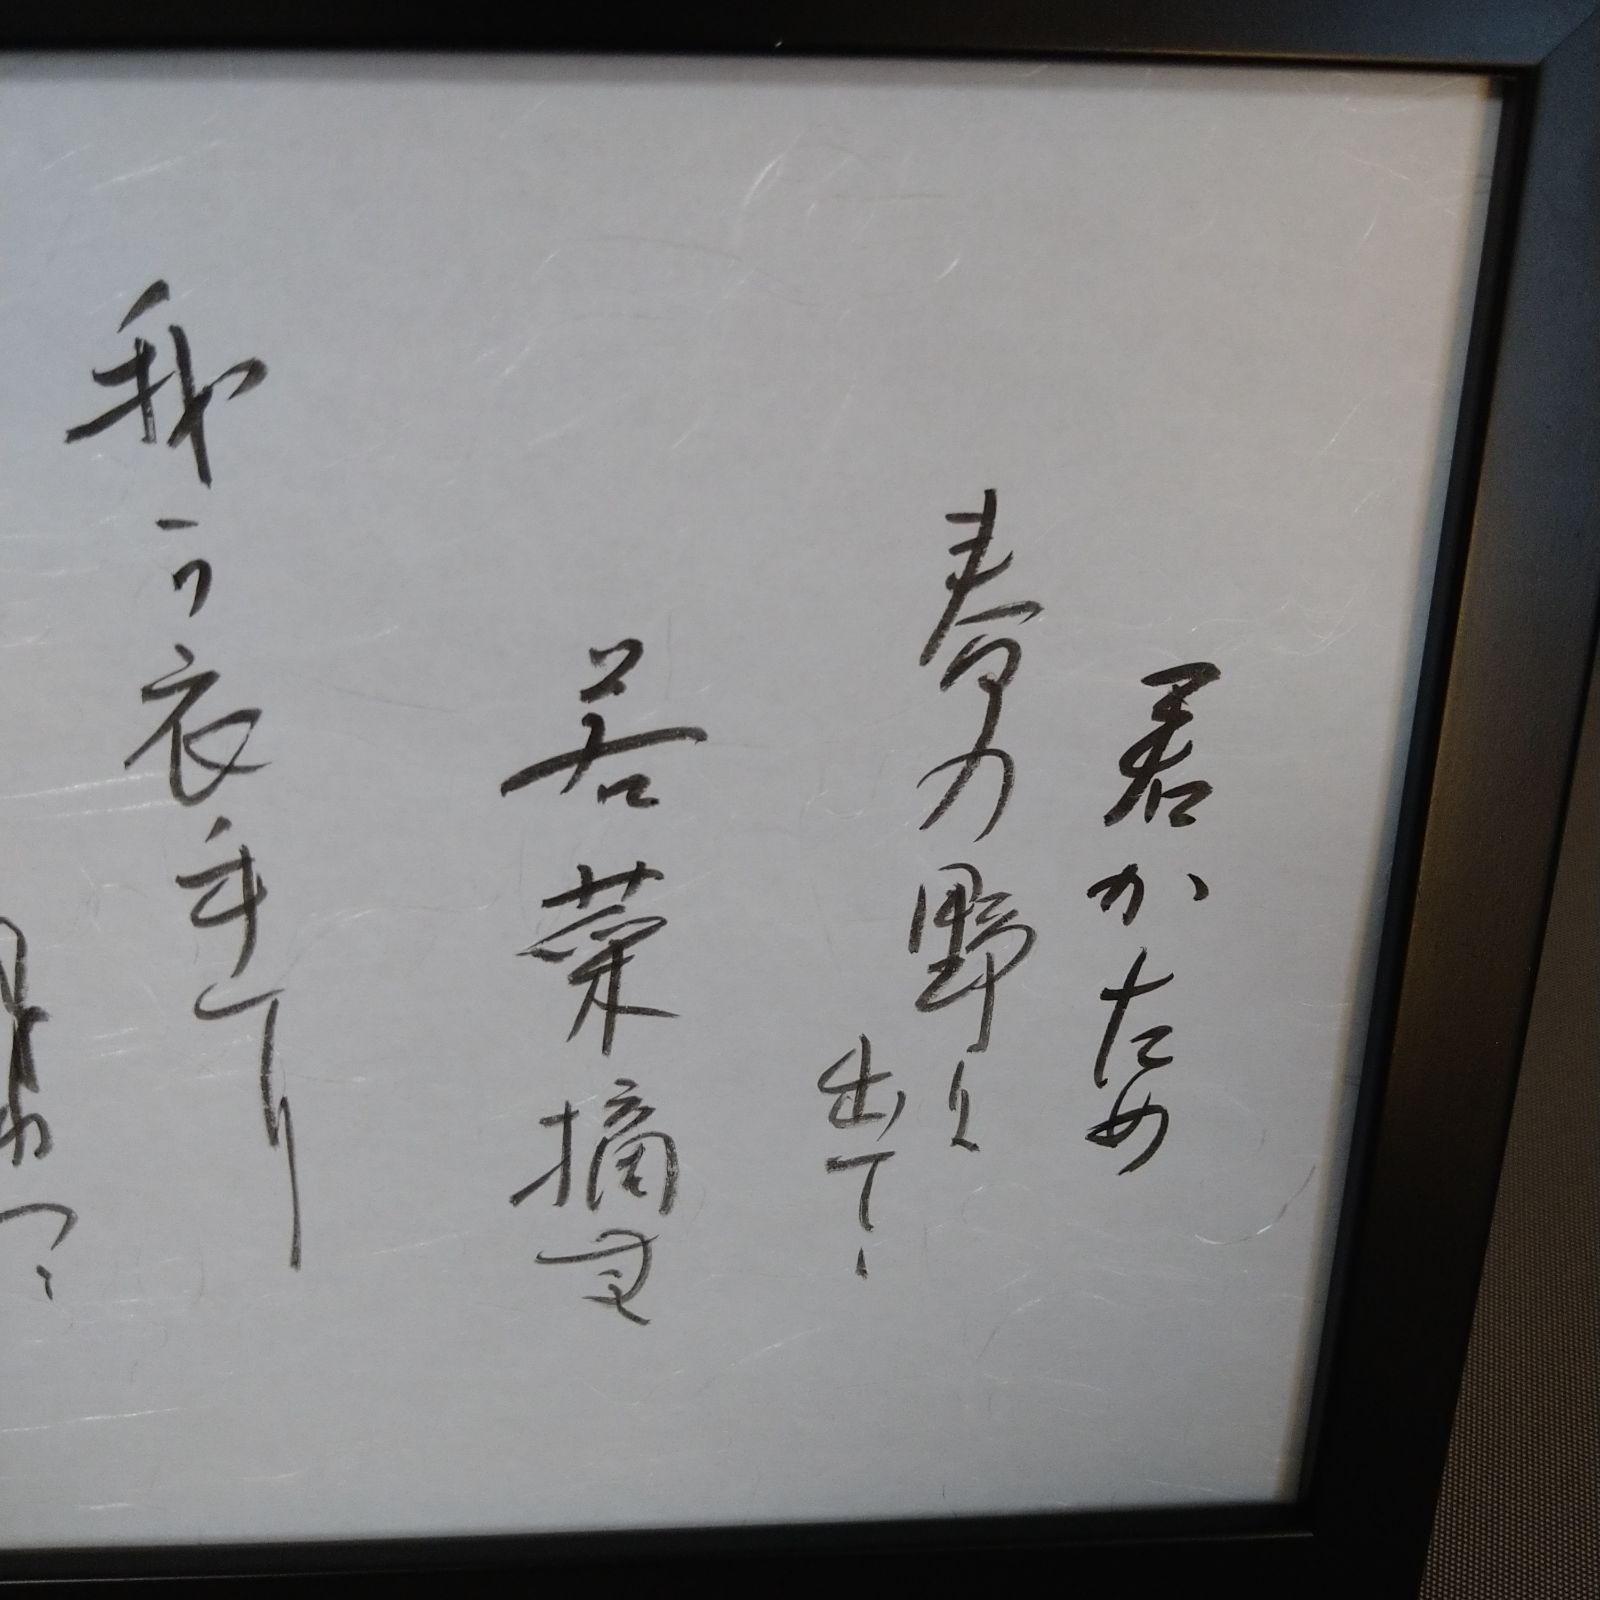 君かため
春乃野に
出てゝ
若菜摘む
我か衣手に
つゝ